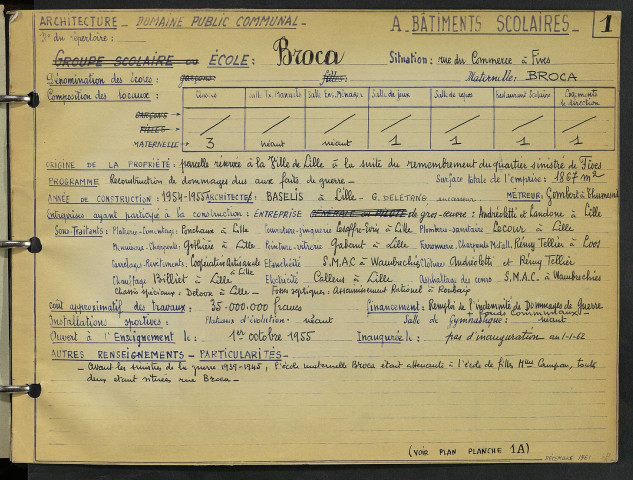 ARCHITECTURE - DOMAINE PUBLIC COMMUNAL - A - BÂTIMENTS SCOLAIRES - 1
N° du répertoire:
GROUPE SCOLAIRE ou ÉCOLE: Broca Situation: rue du Commerce à Fives
Dénomination des écoles: garçons: filles: Maternelle: BROCA
Composition des locaux: Classes Salle Tr. Manuels Salle Ens. Ménager Salle de jeux Salle de repos Restaurant Scolaire Logements de direction
GARÇONS
FILLES
MATERNELLE 3 néant néant 1 1 1 1
ORIGINE DE LA PROPRIÉTÉ: parcelle réservée à la Ville de Lille à la suite du remembrement du quartier sinistré de Fives
PROGRAMME Reconstruction de dommages dus aux faits de guerre - Surface totale de l'emprise: 1867 m²
ANNÉE DE CONSTRUCTION: 1954-1955 ARCHITECTES: BASELIS à Lille - G. DELETANG successeur MÉTREUR: Gombert à
Entreprises ayant participé à la construction: ENTREPRISE GÉNÉRALE ou PILOTE de gros-œuvre: Andréoletti et à Lille
Sous-Traitants: Platerie-Cimentage: à Lille Couverture-zinguerie à Lille Plomberie-sanitaire Lecour à Lille
Menuiserie-Charpente: à Lille Peinture-vitrerie Gabant à Lille Ferronnerie-Charpente Métall. Rémy Tellier à Loos
Carrelage-Revêtements: à Lille Etanchéité S.M.A.C à Wambrechies Clôtures Andréoletti et Rémy Tellier
Chauffage Billiet à Lille Electricité Callens à Lille Asphaltage des cours S.M.A.C. à Wambrechies
Chassis spéciaux: à Lille - Fosses septiques: Assainissement Rationnel à Roubaix
coût approximatif des travaux: 35-000.000 francs Financement: Remploi de l'indemnité de Dommages de Guerre
+ Fonds Communaux
Installations sportives: Plateaux d'évolution: néant Salle de Gymnastique: néant
Ouvert à l'Enseignement le: 1er octobre 1955 Inaugurée le: pas d'inauguration au 1-1-62
AUTRES RENSEIGNEMENTS - PARTICULARITÉS -
- Avant les sinistres de la guerre 1939-1945, l'école maternelle Broca était attenante à l'école de filles Mme Campan, toutes
deux étant situées rue Broca -
(VOIR PLAN PLANCHE 1A)
DÉCEMBRE 1961